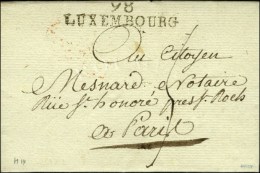 98
LUXEMBOURG
Au Citoyen
Mesnard Notaire
Rüe St honoré près St Roch
a Paris